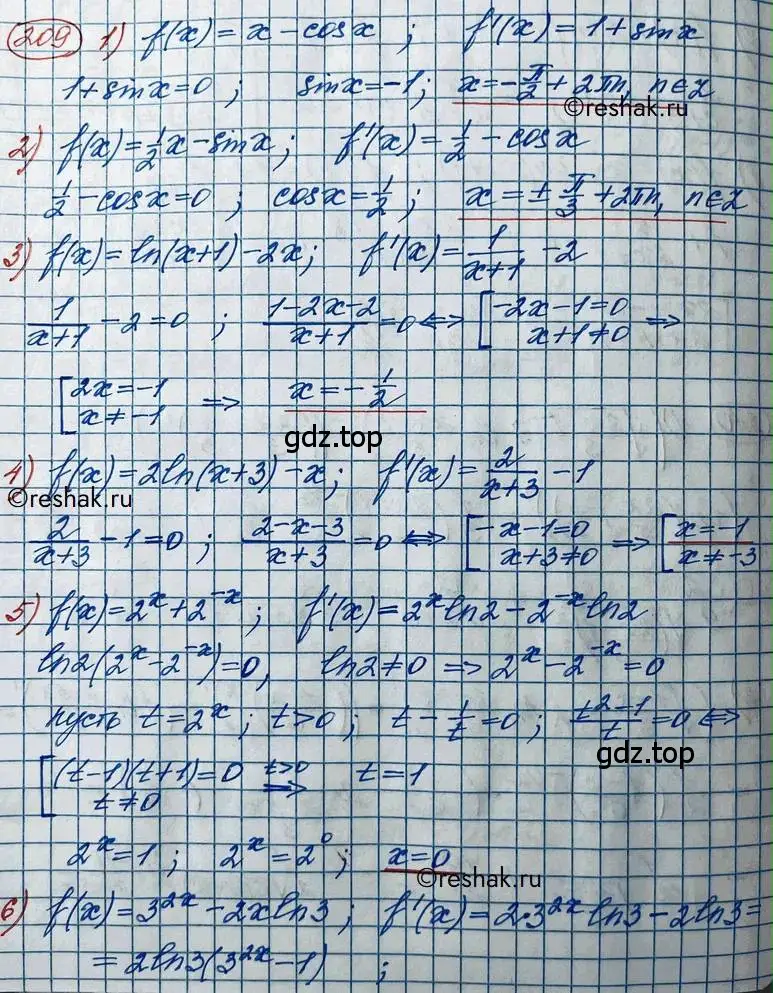 209 1) f(x) = x - cosx ; f'(x) = 1 + sinx
1 + sinx = 0 ; sinx = -1 ; x = -π/2 + 2πn, n∈Z
©reshak.ru
2) f(x) = 1/2 x - sinx ; f'(x) = 1/2 - cosx
1/2 - cosx = 0 ; cosx = 1/2 ; x = ± π/3 + 2πn, n∈Z
3) f(x) = ln(x+1) - 2x ; f'(x) = 1/(x+1) - 2
1/(x+1) - 2 = 0 ; (1-2x-2)/(x+1) = 0 ⇔ [ -2x-1=0
x+1≠0 ⇒
[ 2x = -1
x ≠ -1 ⇒ x = - 1/2
gdz.top
4) f(x) = 2ln(x+3) - x ; f'(x) = 2/(x+3) - 1
©reshak.ru
2/(x+3) - 1 = 0 ; (2-x-3)/(x+3) = 0 ⇔ [ -x-1=0 ⇒ [ x=-1
x+3≠0 x≠-3
5) f(x) = 2^x + 2^-x ; f'(x) = 2^x ln2 - 2^-x ln2
ln2(2^x - 2^-x) = 0, ln2≠0 ⇒ 2^x - 2^-x = 0
пусть t = 2^x ; t>0 ; t - 1/t = 0 ; (t²-1)/t = 0 ⇔
gdz.top
[ (t-1)(t+1) = 0 t>0 ⇒ t = 1
t≠0
2^x = 1 ; 2^x = 2^0 ; x = 0
©reshak.ru
6) f(x) = 3^2x - 2xln3 ; f'(x) = 2·3^2x ln3 - 2ln3 =
= 2ln3(3^2x - 1) ;